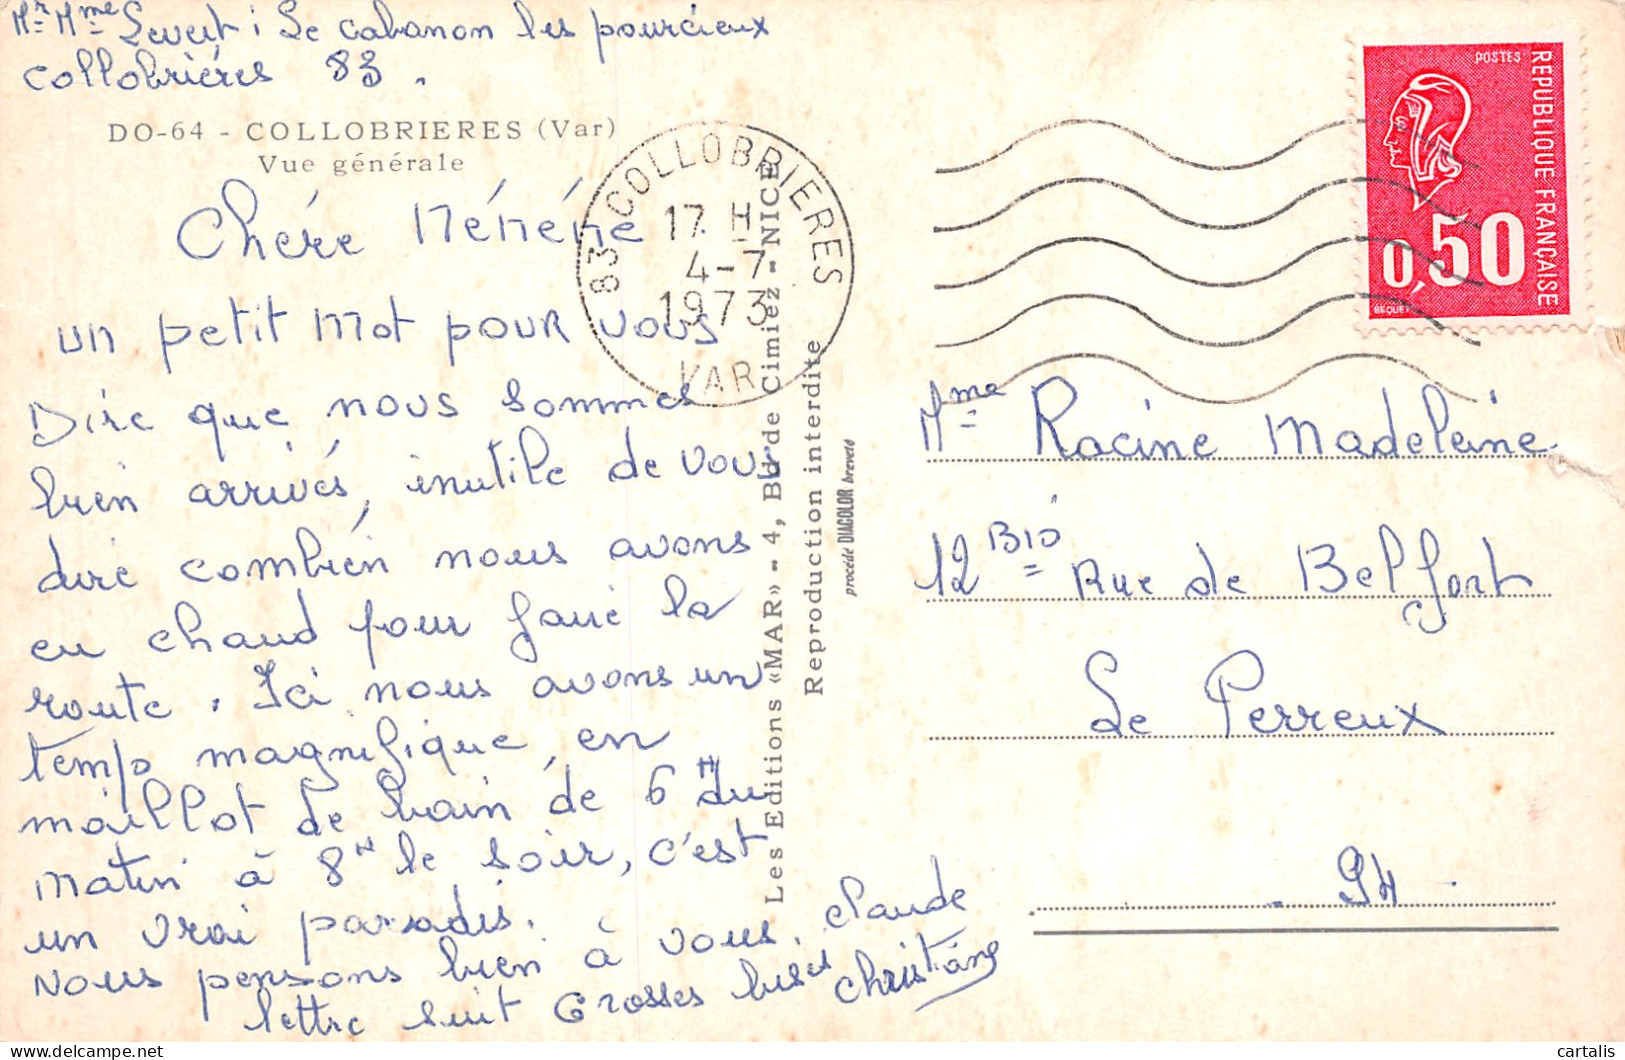 Mr Mme Levert : Le cabanon les pourcieux
Collobriéres 83.
DO-64 - COLLOBRIERES (Var)
Vue générale
Chére Ménéne
un petit mot pour vous
Dire que nous sommes
bien arrivés, inutile de vous
dire combien nous avons
eu chaud pour faire la
route. Ici nous avons un
temps magnifique, en
maillot de bain de 6H du
matin à 8H le soir, c'est
un vrai paradis.
Nous pensons bien à vous.
lettre suit Grosses bises
claude
christiane
83 COLLOBRIERES
17 H
4-7
1973
VAR
Les Editions «MAR» - 4, Bd de Cimiez - NICE
Reproduction interdite
procédé DIACOLOR breveté
POSTES
REPUBLIQUE FRANÇAISE
0,50
BEQUET
Mme Racine Madeleine
12 Bis Rue de Belfort
Le Perreux
94
cartalis